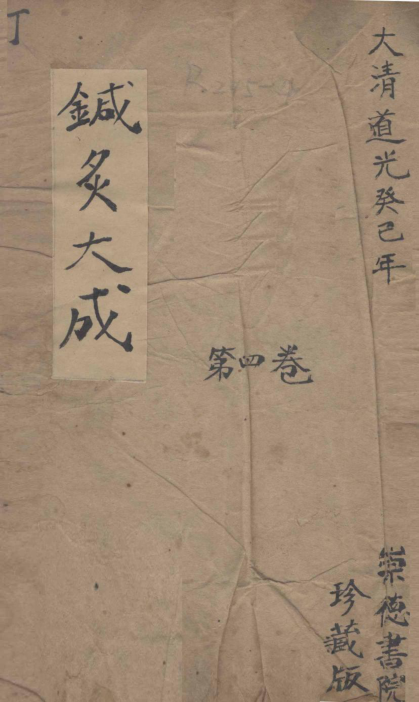 大清道光癸巳年
崇德書院
珍藏版
第四卷
鍼灸大成
丁